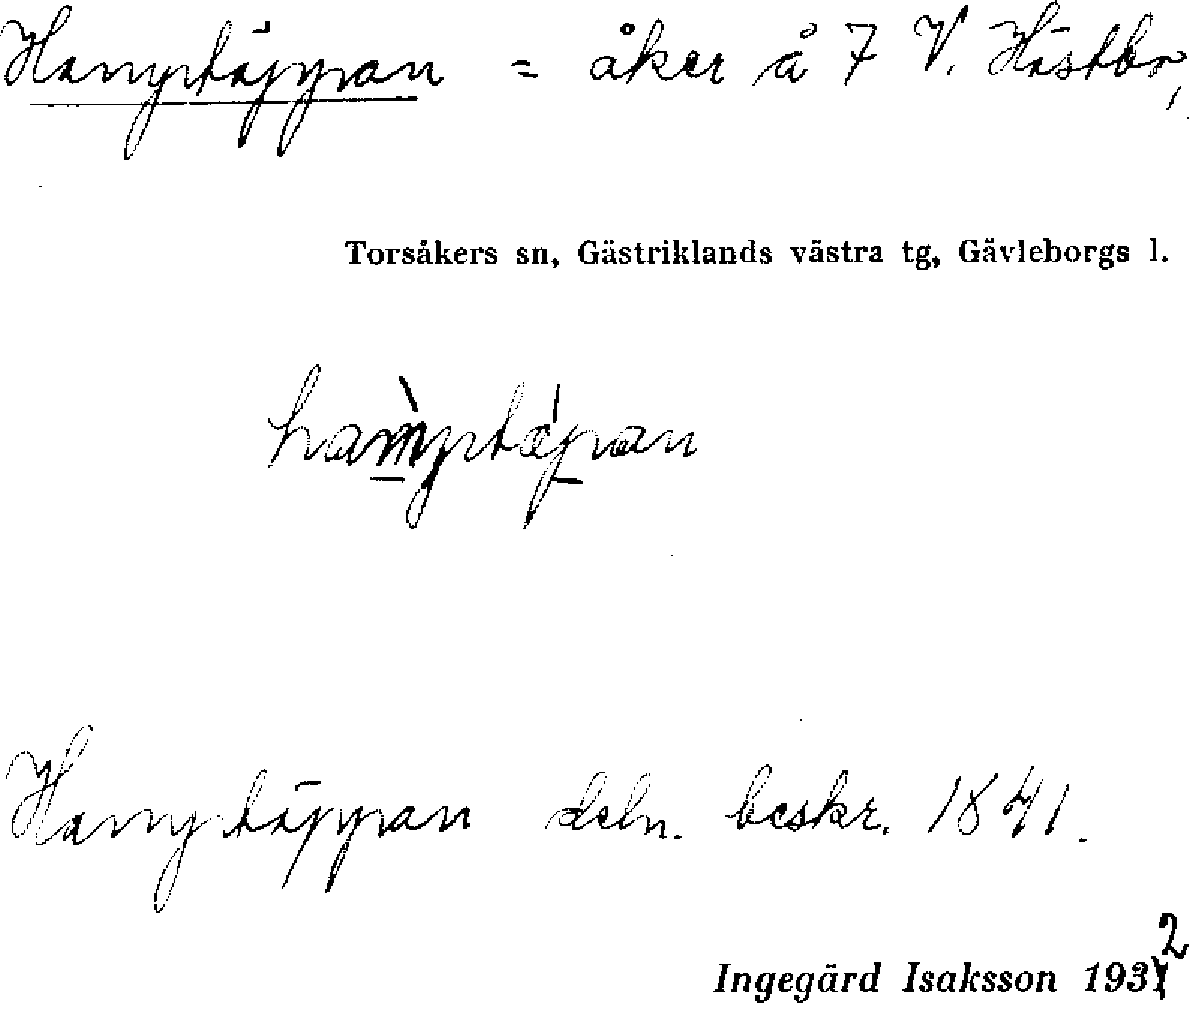 Hamptäppan = åker å 7 V. Hästbo,
Torsåkers sn, Gästriklands västra tg, Gävleborgs l.
hamptäpan
Hamptäppan deln. beskr. 1841.
Ingegärd Isaksson 1932